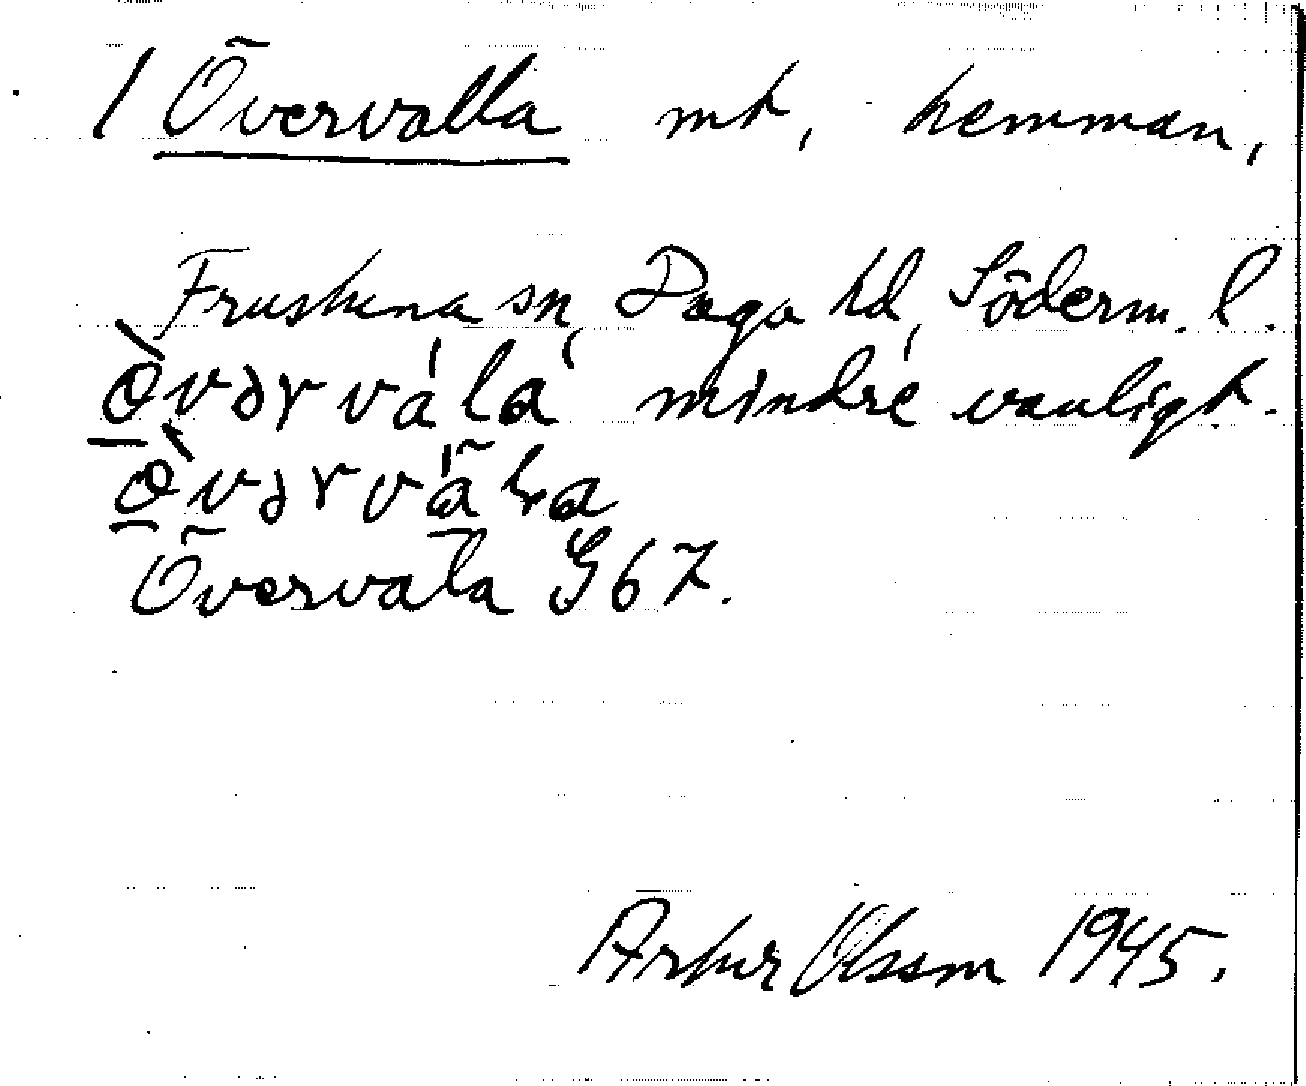 1 Övervalla mt, hemman,
Frustuna sn, Daga hd, Söderm. l.
mindre vanligt.
Övervala G67.
Artur Olsson 1945.